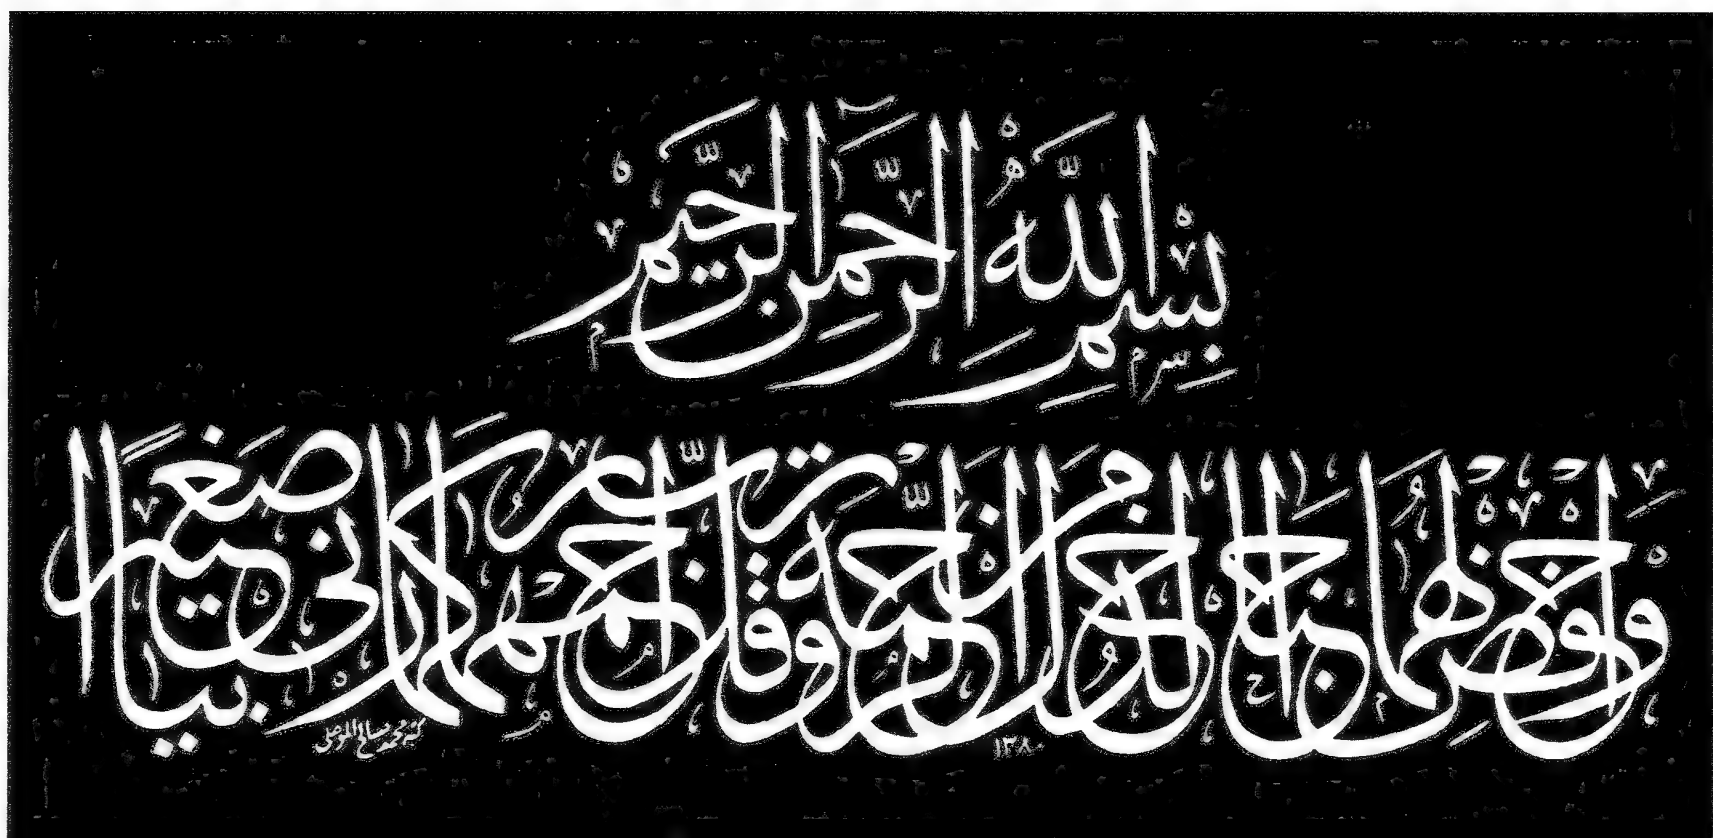 بِسْمِ اللَّهِ الرَّحْمَٰنِ الرَّحِيمِ
وَاخْفِضْ لَهُمَا جَنَاحَ الذُّلِّ مِنَ الرَّحْمَةِ وَقُلْ رَبِّ ارْحَمْهُمَا كَمَا رَبَّيَانِي صَغِيرًا
كتبه محمد صالح الموصلي
١٣٨٠